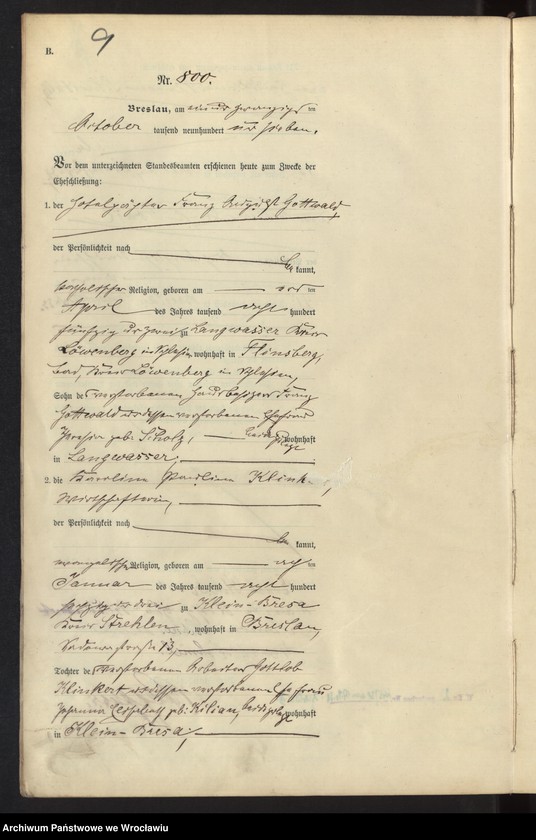 B.
9
Nr. 800.
Breslau, am einundzwanzigsten
October tausend neunhundert und sieben.
Vor dem unterzeichneten Standesbeamten erschienen heute zum Zwecke der
Eheschließung:
1. der Hotelpächter Franz August Gottwald,
der Persönlichkeit nach
be kannt,
katholischer Religion, geboren am ten
April des Jahres tausend acht hundert
fünfzig und zwei zu Langwasser Kreis
Löwenberg in Schlesien, wohnhaft in Flinsberg,
Bad, Kreis Löwenberg in Schlesien,
Sohn des verstorbenen Hausbesitzers Franz
Gottwald und dessen verstorbenen Ehefrau
geb. Scholz, beide zuletzt wohnhaft
in Langwasser,
2. die Karolina Paulina Klinkert,
Wirtschafterin,
der Persönlichkeit nach
be kannt,
evangelischer Religion, geboren am ten
Januar des Jahres tausend acht hundert
sechzig und drei zu Klein-Bresa
Kreis Strehlen, wohnhaft in Breslau,
Sadowastraße 13,
Tochter des verstorbenen Arbeiters Gottlob
Klinkert und dessen verstorbenen Ehefrau
Johanna Elisabeth geb. Kilian, beide zuletzt wohnhaft
in Klein-Bresa,
Archiwum Państwowe we Wrocławiu